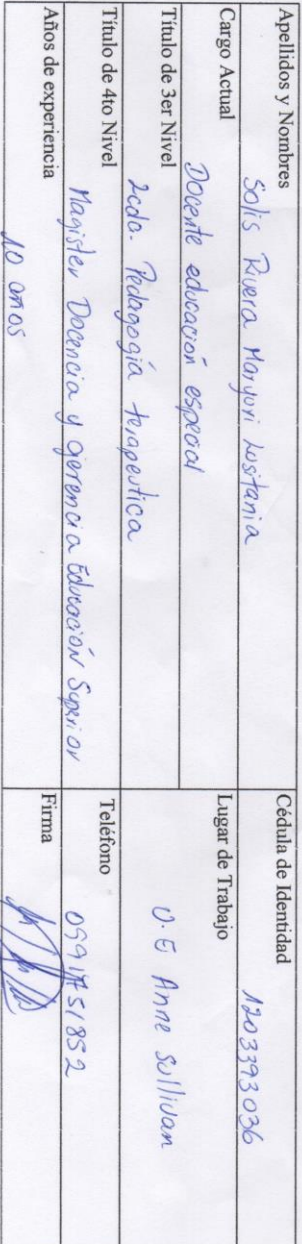 Apellidos y Nombres
Solis Rivera Maryuri Lusitania
Cédula de Identidad
1203393036
Cargo Actual
Docente educación especial
Lugar de Trabajo
U.E Anne Sullivan
Título de 3er Nivel
Lcda. Pedagogía terapeutica
Título de 4to Nivel
Magister Docencia y gerencia Educación Superior
Teléfono
0991751852
Años de experiencia
10 años
Firma